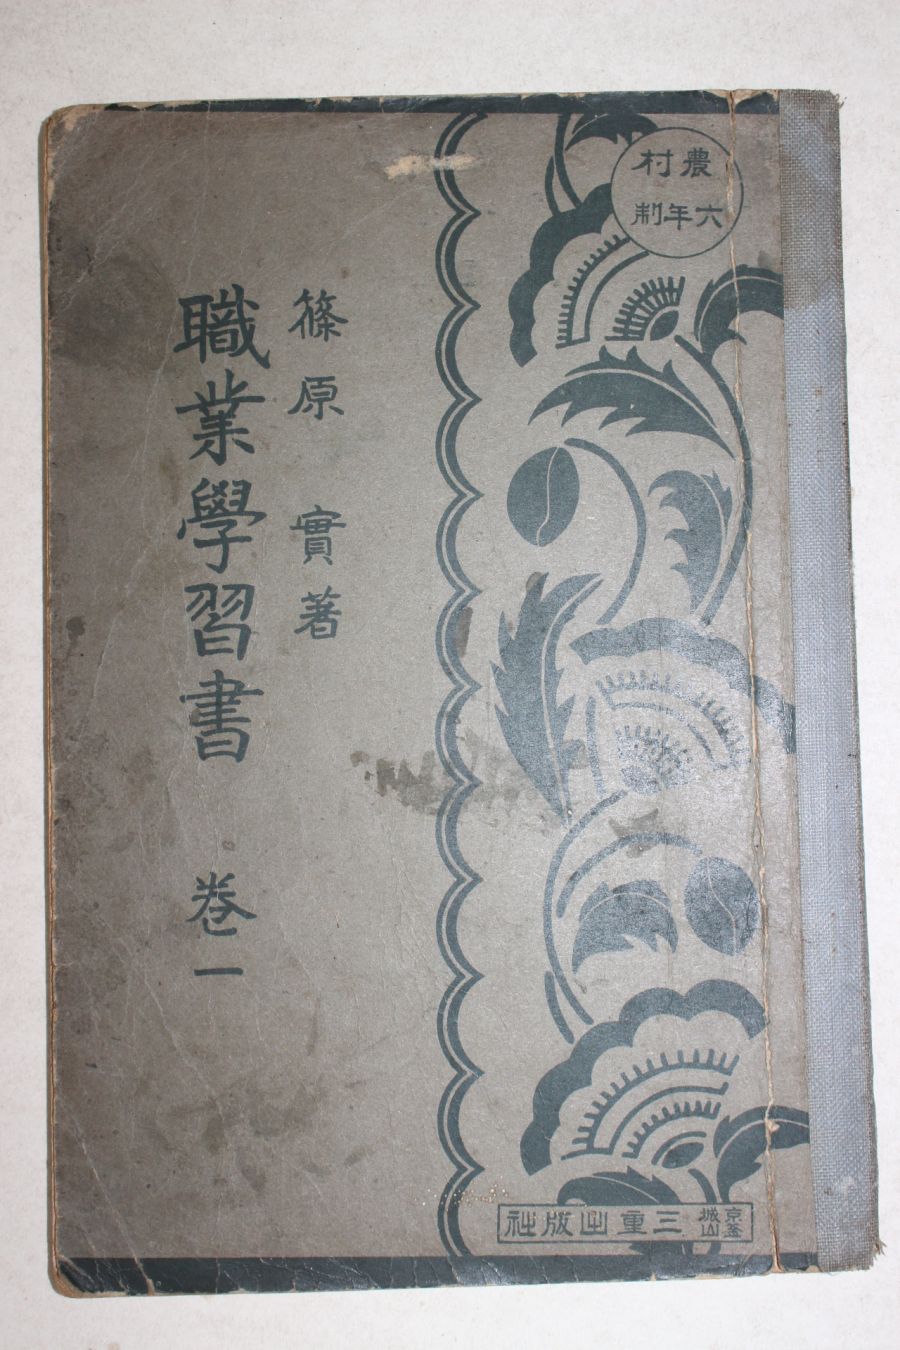 農村
六年制
篠原 實著
職業學習書 卷一
京城 釜山 三重出版社